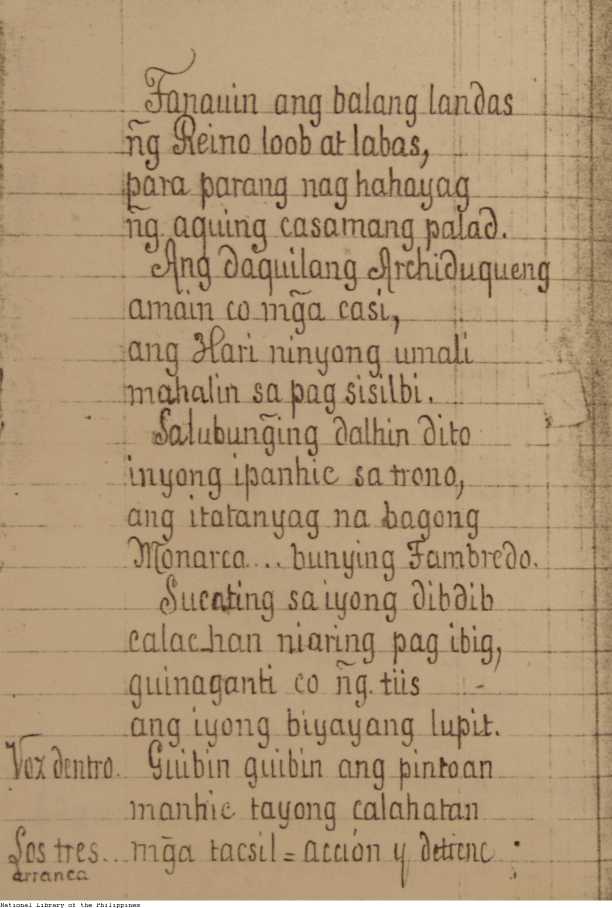 Tanauin ang balang landas
n͠g Reino loob at labas,
para parang nag hahayag
n͠g. aquing casamang palad.
Ang daquilang Archiduqueng
amain co mg̃a casi,
ang Hari ninyong umali
mahalin sa pag sisilbi.
Salubung̃ing dalhin dito
inyong ipanhic sa trono,
ang itatanyag na bagong
Monarca.... bunying Tambredo.
Sucating sa iyong dibdib
calac-han niaring pag ibig,
guinaganti co n͠g. tiis
ang iyong biyayang lupit.
Vox dentro. Guibin guibin ang pintoan
manhic tayong calahatan
Los tres... mg̃a tacsil = acción y detienc
arranca
National Library of the Philippines